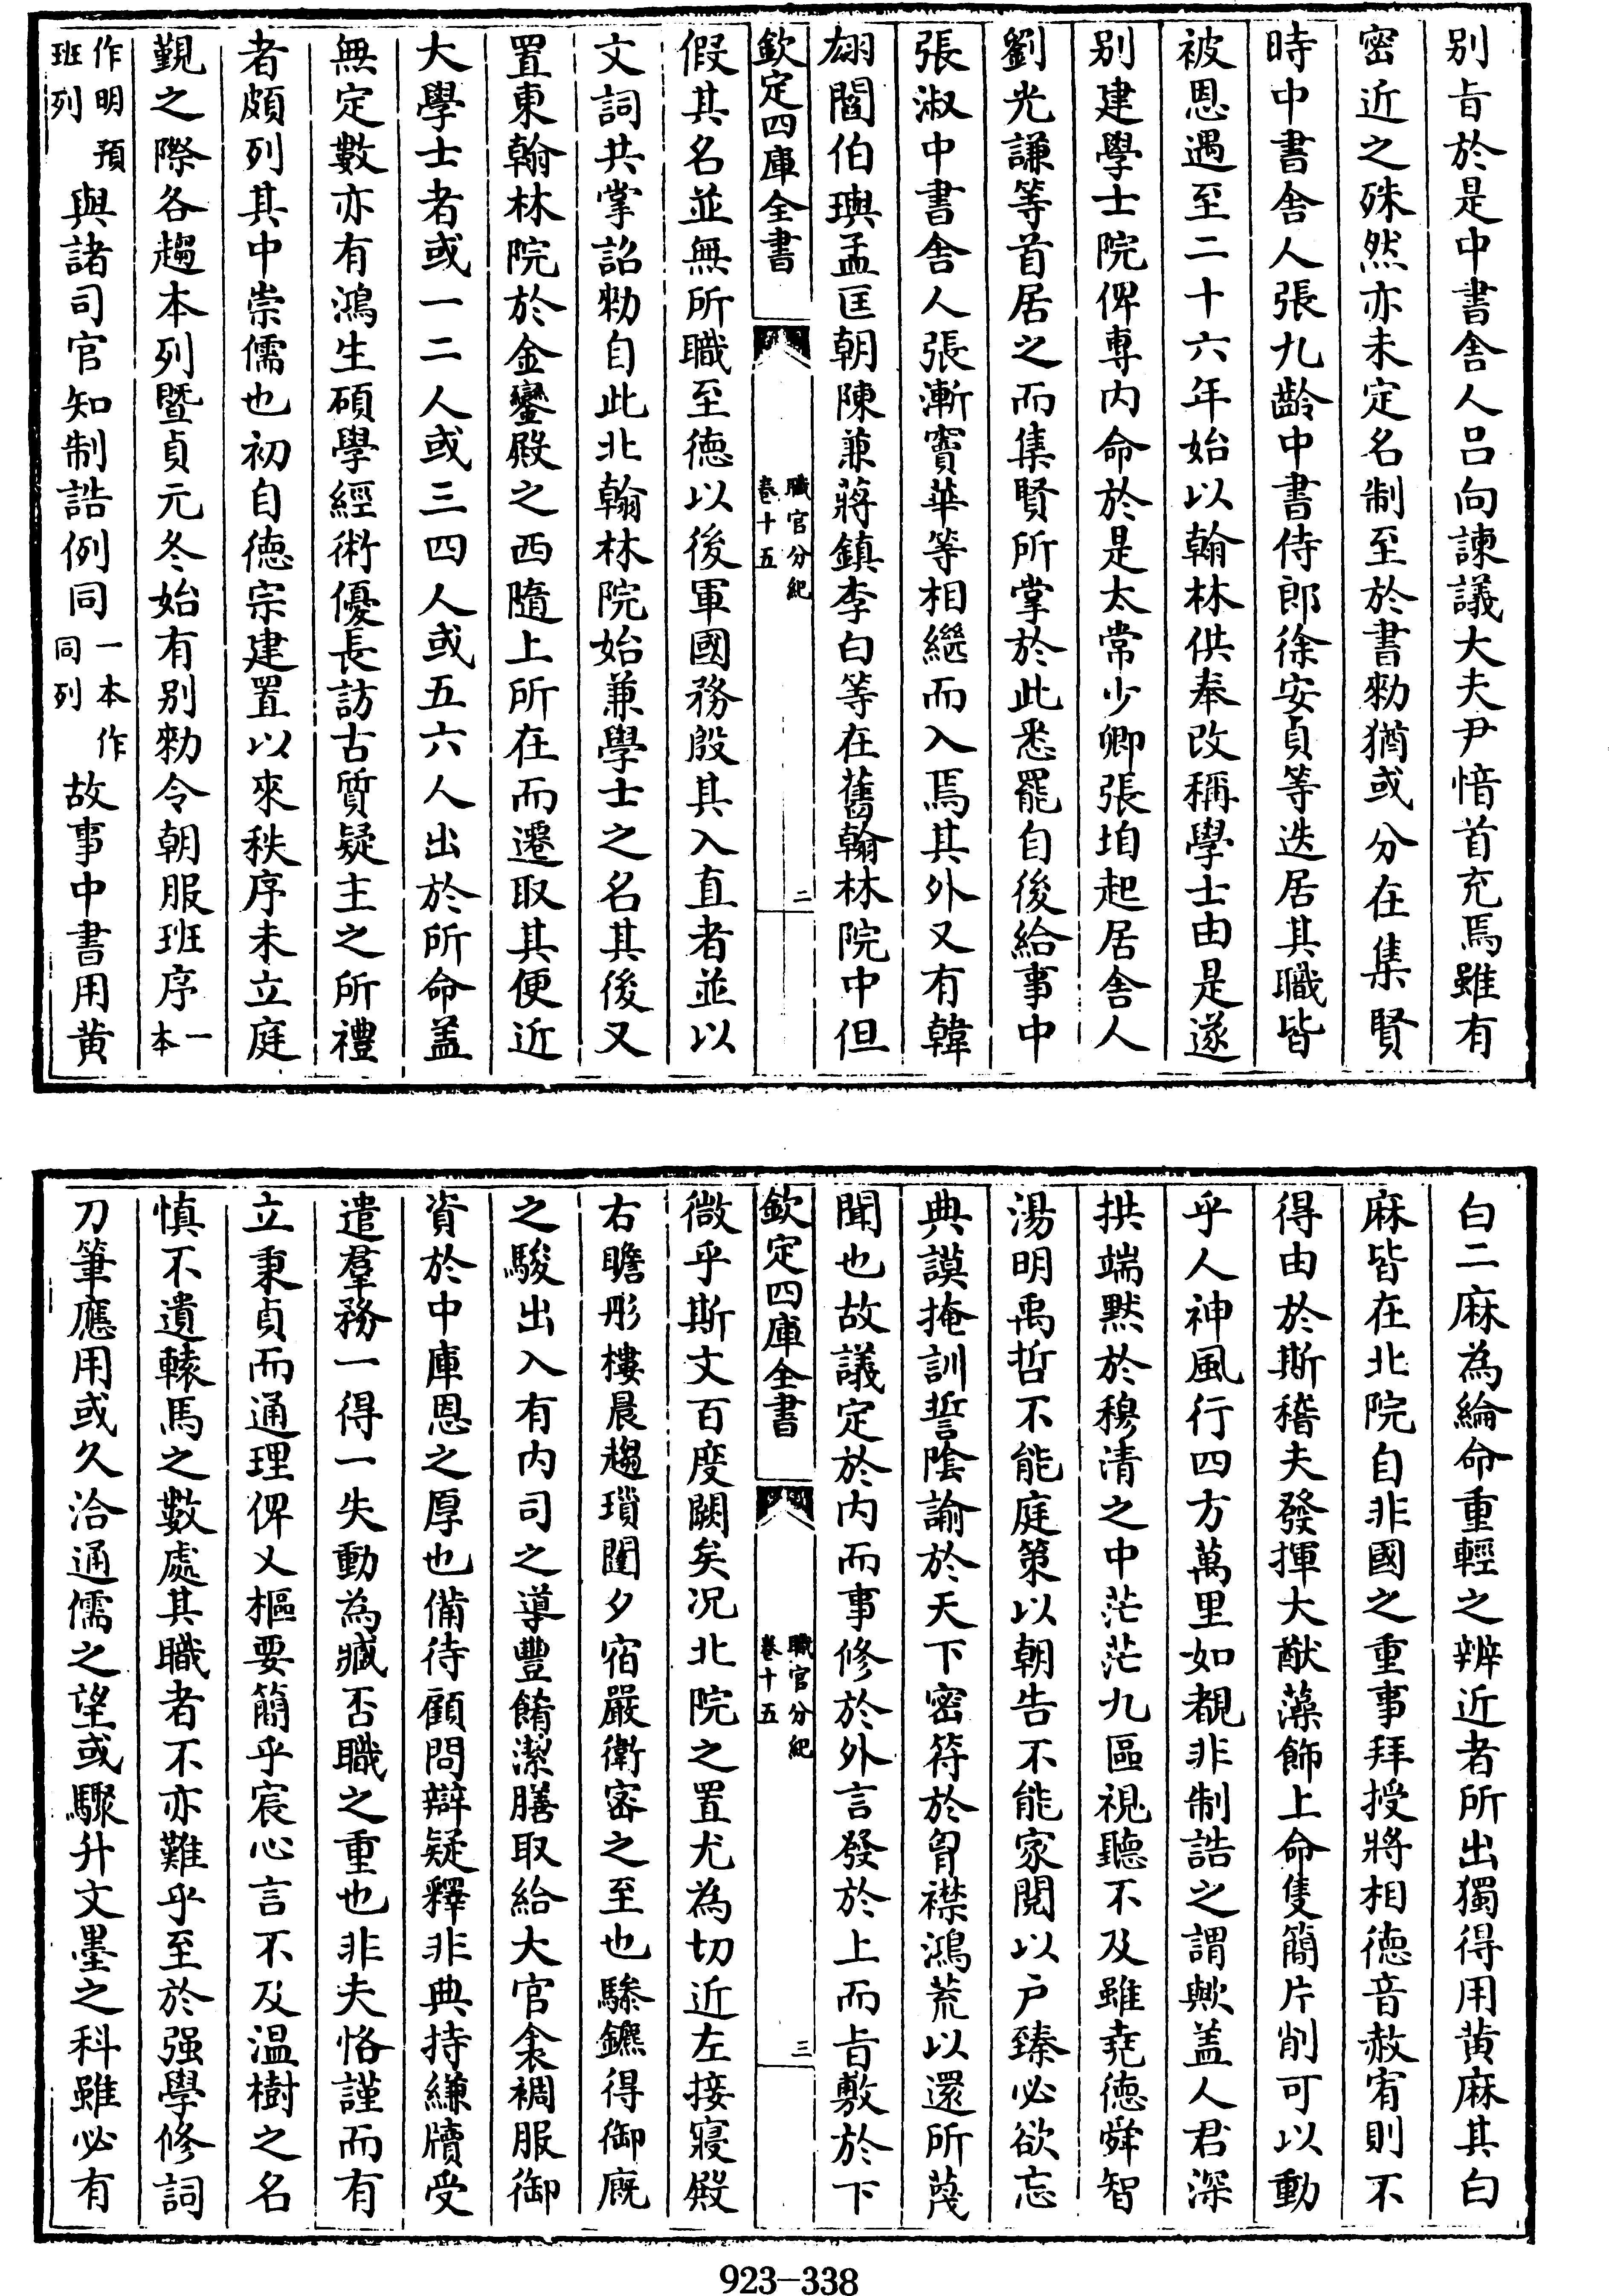 别㫖於是中書舎人吕向諫議大夫尹愔首充焉雖有
密近之殊然亦未定名制至於書勅猶或分在集賢
時中書舎人張九齡中書侍郎徐安貞等迭居其職皆
被恩遇至二十六年始以翰林供奉改稱學士由是遂
别建學士院俾専内命於是太常少卿張垍起居舎人
劉光謙等首居之而集賢所掌於此悉罷自後給事中
張淑中書舎人張漸竇華等相繼而入焉其外又有韓
翃閻伯璵孟匡朝陳兼蔣鎮李白等在舊翰林院中但
欽定四庫全書
職官分紀
卷十五
二
假其名並無所職至徳以後軍國務殷其入直者並以
文詞共掌詔勅自此北翰林院始兼學士之名其後又
置東翰林院於金鑾殿之西隨上所在而遷取其便近
大學士者或一二人或三四人或五六人出於所命盖
無定數亦有鴻生碩學經術優長訪古質疑主之所禮
者頗列其中崇儒也初自徳宗建置以來秩序未立庭
覲之際各趨本列暨貞元冬始有别勅令朝服班序一本
作明預班列與諸司官知制誥例同一本作同列故事中書用黄
白二麻為綸命重輕之辨近者所出獨得用黄麻其白
麻皆在北院自非國之重事拜授將相徳音赦宥則不
得由於斯稽夫發揮大猷藻飾上命隻簡片削可以動
乎人神風行四方萬里如覩非制誥之謂歟盖人君深
拱端黙於穆清之中茫茫九區視聽不及雖堯徳舜智
湯明禹哲不能庭策以朝告不能家閲以户臻必欲忘
典謨掩訓誓隂諭於天下密符於胷襟鴻荒以還所蔑
聞也故議定於内而事修於外言發於上而㫖敷於下
欽定四庫全書
職官分紀
卷十五
三
微乎斯文百度闕矣况北院之置尤為切近左接寢殿
右瞻彤樓晨趨瑣闥夕宿嚴衛宻之至也驂鑣得御廐
之駿出入有内司之導豐餚潔膳取給大官衾裯服御
資於中庫恩之厚也備待顧問辯疑釋非典持縑牘受
遣羣務一得一失動為臧否職之重也非夫恪謹而有
立秉貞而通理俾乂樞要簡乎宸心言不及温樹之名
慎不遺轅馬之數處其職者不亦難乎至於强學修詞
刀筆應用或久洽通儒之望或驟升文墨之科雖必有
923-338